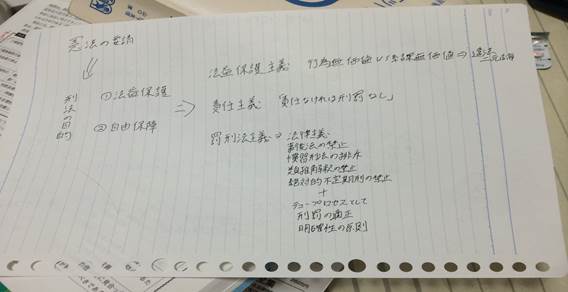 憲法の要請
刑法の目的
①法益保護
②自由保障
法益保護主義 行為無価値 VS 結果無価値 ⇒ 違法二元論
責任主義 「責任なければ刑罰なし」
罪刑法主義 ⇒ 法律主義
事後法の禁止
慣習刑法の排斥
類推解釈の禁止
絶対的不定期刑の禁止
+
デュープロセスとして
刑罰の適正
明確性の原則